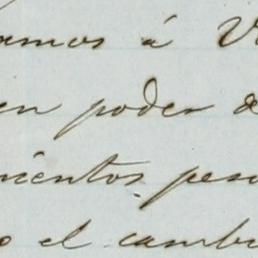 amos á V
en poder d
ientos peso
o el cambi